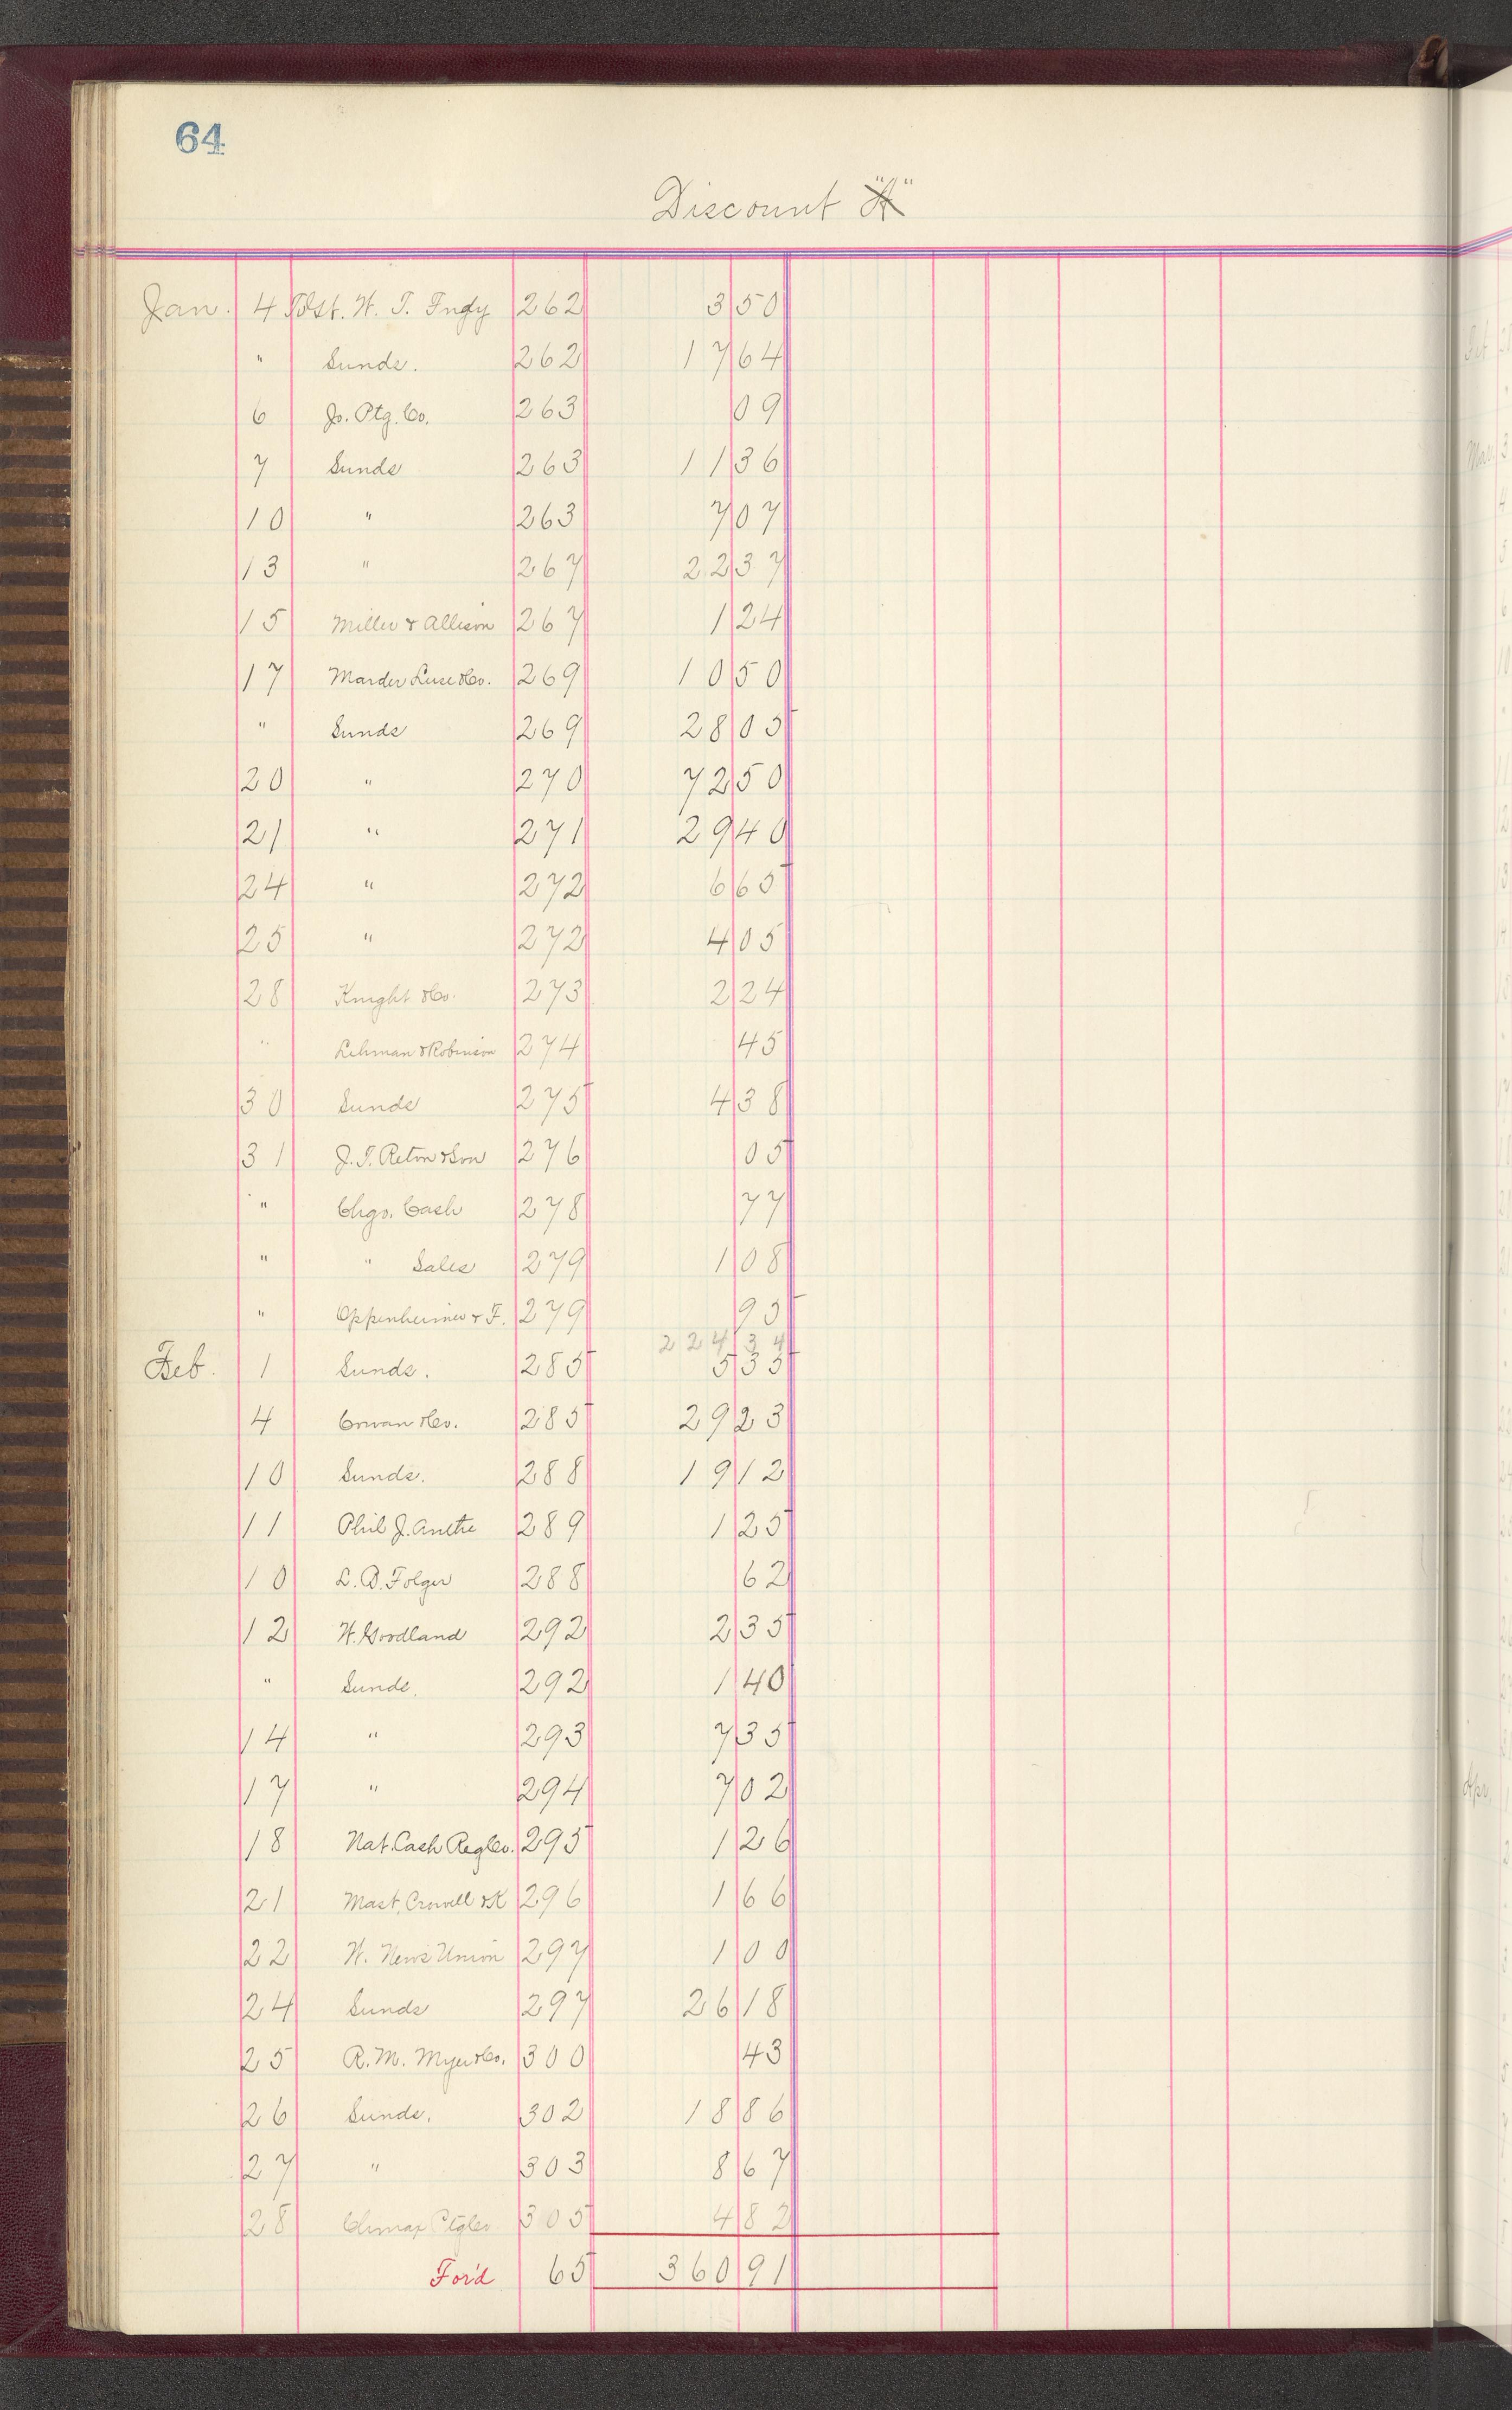 64
Discount "A"
Jan. 4 Dist. W. T. Indy 262 3 50
" Sunds. 262 17 64
6 Jo. Ptg. Co. 263 09
7 Sunds 263 11 36
10 " 263 7 07
13 " 267 22 37
15 Miller & Allison 267 1 24
17 Marder Luse & Co. 269 10 50
" Sunds 269 28 05
20 " 270 72 50
21 " 271 29 40
24 " 272 6 65
25 " 272 4 05
28 Knight & Co. 273 2 24
" Lehman & Robinson 274 45
30 Sunds 275 4 38
31 J. T. & Son 276 05
" Chgo. Cash 278 77
" " Sales 279 1 08
" Oppenheimer & F. 279 95
224 34
Feb. 1 Sunds. 285 5 35
4 Cowan & Co. 285 29 23
10 Sunds. 288 19 12
11 Phil J. 289 1 25
10 L. B. Folger 288 62
12 W. Goodland 292 2 35
" Sunds. 292 1 40
14 " 293 7 35
17 " 294 7 02
18 Nat. Cash Reg Co. 295 1 26
21 Mast, Crowell & K 296 1 66
22 W. News Union 297 1 00
24 Sunds 297 26 18
25 R. M. Myer & Co. 300 43
26 Sunds. 302 18 86
27 " 303 8 67
28 Climax Ptg Co 305 4 82
For'd 65 360 91